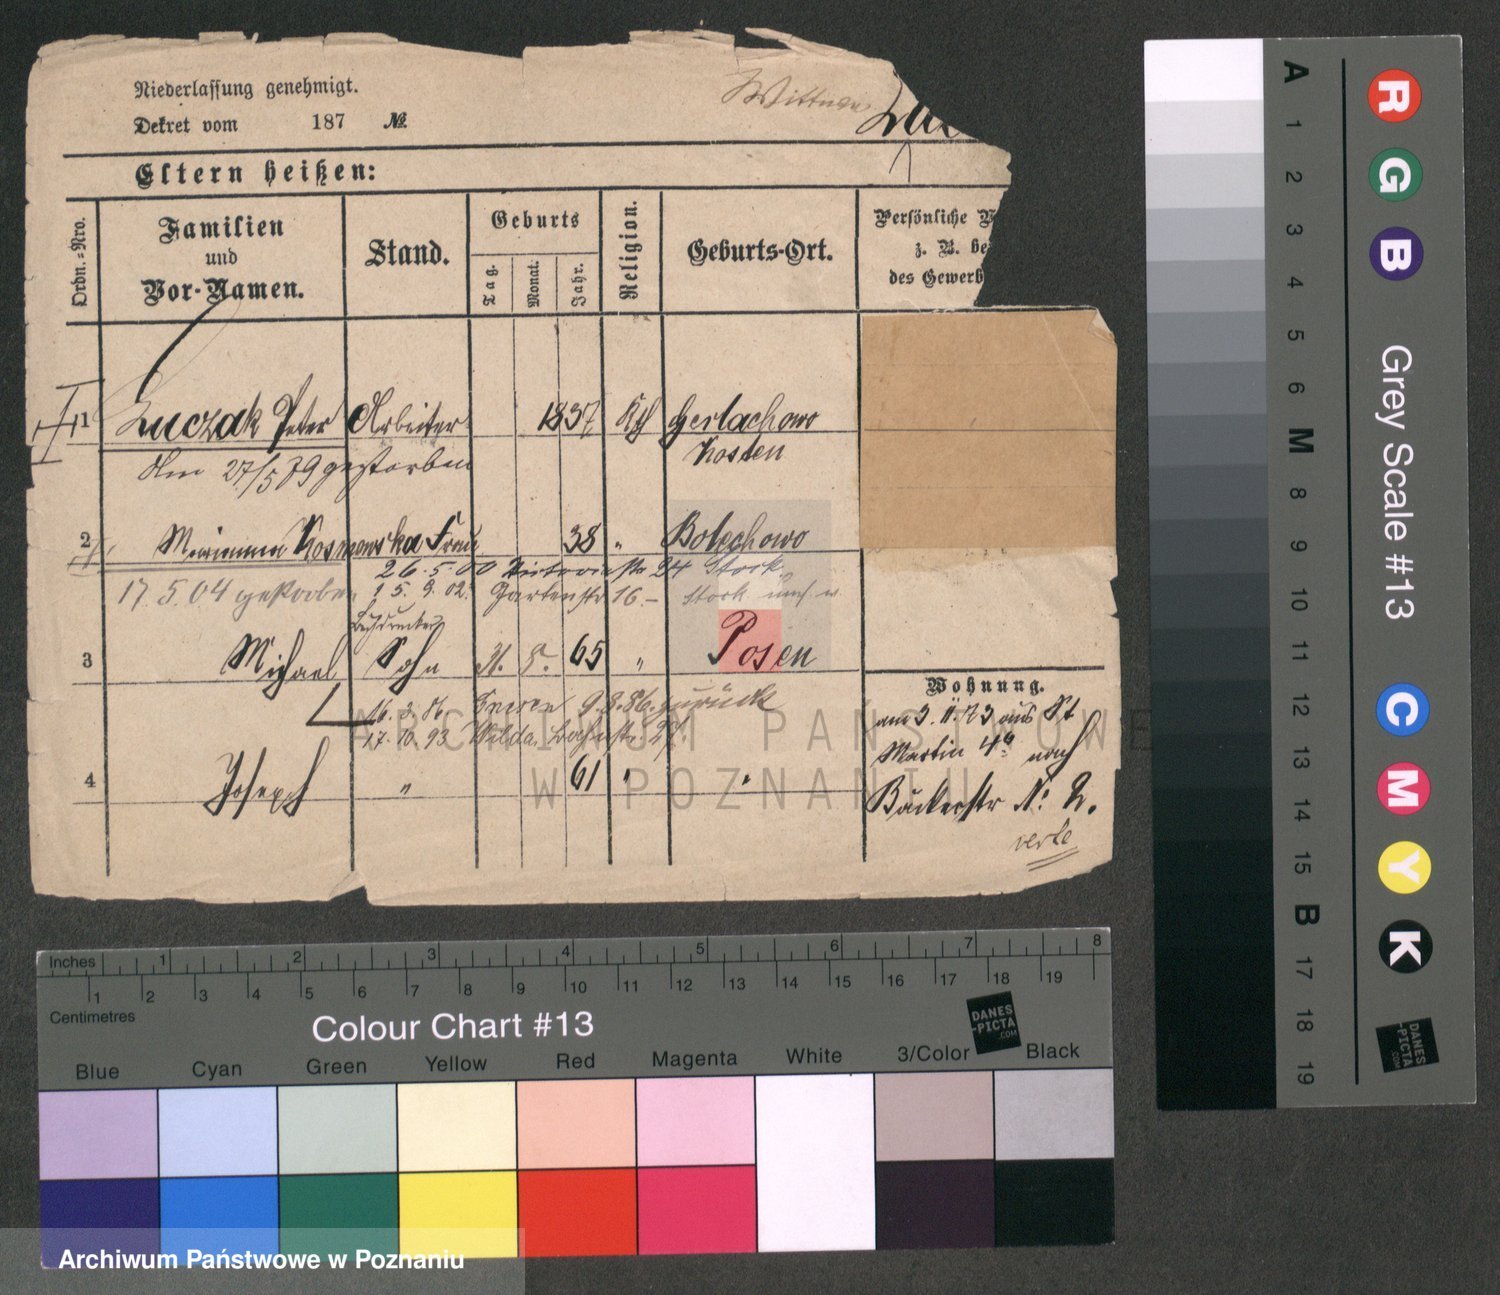 Niederlassung genehmigt.
Dekret vom 187 №
Eltern heißen:
Ordn.-Nro.
Familien
und
Vor-Namen.
Stand.
Geburts
Tag.
Monat.
Jahr.
Religion.
Geburts-Ort.
Persönliche V
z. B. be
des Gewerb
1 Luczak Peter Arbeiter 1837 Kth Gerlachowo
Kosten
Am 27/5 79 gestorben
2 Marianna Kosmowska Frau 38 " Bolechowo
26.5.00 24 Stock
17.5.04 gestorben 15.9.02. Gartenstr 16.-
3 Michael Sohn 31. 65 " Posen
16.3.86. 9.8.86. zurück
17.10.93 Wilda
4 Joseph " 61 " "
Wohnung.
am 3. 11. 73 aus St
Martin 4 nach
Bäckerstr N:
ARCHIWUM PAŃSTWOWE
W POZNANIU
A 1 2 3 4 5 6 M 8 9 10 11 12 13 14 15 B 17 18 19
R G B Grey Scale #13 C M Y K
DANES
-PICTA
.COM
Inches 1 2 3 4 5 6 7 8
1 2 3 4 5 6 7 8 9 10 11 12 13 14 15 16 17 18 19
Centimetres
Colour Chart #13
DANES
-PICTA
.COM
Blue Cyan Green Yellow Red Magenta White 3/Color Black
Archiwum Państwowe w Poznaniu